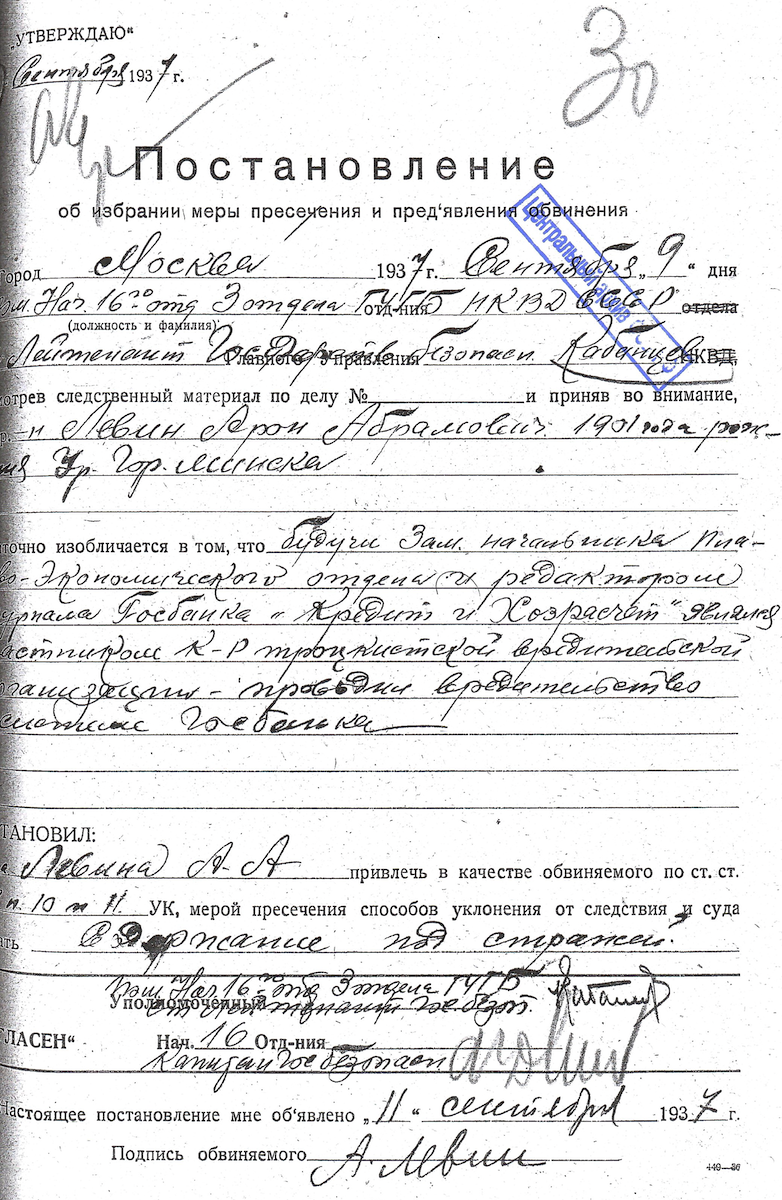 „УТВЕРЖДАЮ“
Сентября 1937 г.
30
Постановление
об избрании меры пресечения и пред'явления обвинения
Центральный архив
Город Москва 1937 г. Сентября „9“ дня
Пом. Нач. 16го отд 3 отдела ГУГБ отд-ния НКВД СССР отдела
(должность и фамилия)
Лейтенант Гос Главного Управления безопасн. Кабанцев НКВД,
отрев следственный материал по делу № и приняв во внимание,
р.—н Левин Арон Абрамович 1901 года рож-
ия Ур. Гор. Минска
точно изобличается в том, что будучи Зам. начальника пла-
во-Экономического отдела и редактором
урнала Госбанка „Кредит и Хозрасчет“ являлся
астником К-Р троцкистской вредительской
рганизации – проводил вредительство
системе Госбанка
ТАНОВИЛ:
Левина А. А привлечь в качестве обвиняемого по ст. ст.
п. 10 и 11 УК, мерой пресечения способов уклонения от следствия и суда
ать Содержание под стражей.
Пом. Нач. 16го отд 3 отдела ГУГБ
Уполномоченный Лейтенант Гос безоп.
ГЛАСЕН“ Нач. 16 Отд-ния
Капитан Гос безопасн
Настоящее постановление мне об'явлено „11“ сентября 1937 г.
Подпись обвиняемого А. Левин
449—36